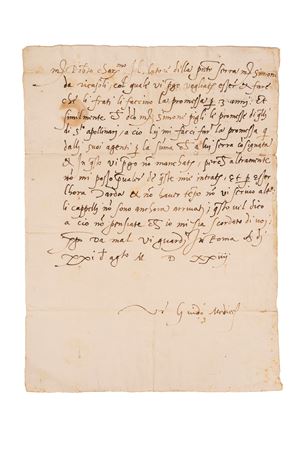 mo Fabio Car.mo Il latore della pnte serra mo Simoni
da ricasoli, col quale vi pgo vogliate esser & fare
che li frati li faccino la promessa p 3 anni. Et
similmente che dcto mo Simone pigli le promesse
di sto apollenari, a cio lui mi facci far la promessa
dalli suoi agenti p la suma che a lui serra cosegnata
& in questo vi pgo no mancate, perche altramente
no mi posso valer de queste mie intrate, et p esser
lhora tarda & no haver tepo no vi scrivo altro
li cappelli no sono anchora arrivati; questo vel dico
a cio no pensiate che io mi sia scordato di voi;
da mal vi guardi Roma
XXI de agto M D XX
Vr Guido Medices